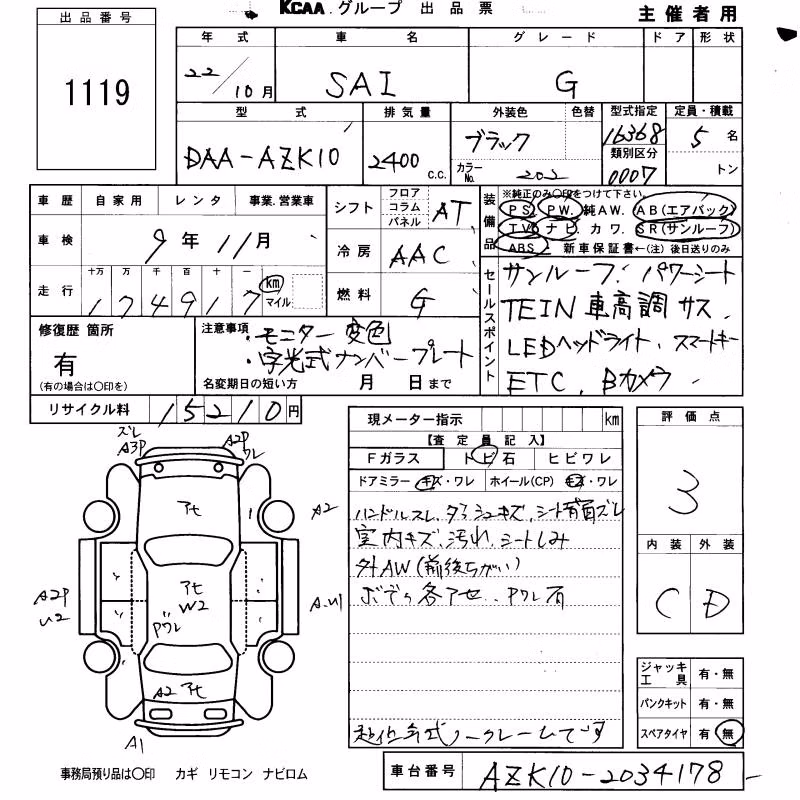 KCAA.グループ 出品票
主催者用
出品番号
1119
年式 車名 グレード ドア 形状
22/10月 SAI G
型式 排気量 外装色 色替 型式指定 定員・積載
DAA-AZK10 2400 c.c. ブラック 16368 5名
カラーNo. 202 類別区分 0007 トン
車歴 自家用 レンタ 事業.営業車
シフト フロア コラム パネル AT
装備品
※純正のみ○印をつけて下さい。
PS. PW. 純AW. AB(エアバック)
TV ナビ. カワ. SR(サンルーフ)
ABS 新車保証書←(注)後日送りのみ
車検 9年11月
冷房 AAC
走行 十万 万 千 百 十 一
174917 km マイル
燃料 G
セールスポイント
サンルーフ. パワーシート
TEIN車高調 サス.
LEDヘッドライト. スマートキー
ETC. Bカメラ
修復歴 箇所
有
(有の場合は○印を)
注意事項
・モニター変色
・字光式ナンバープレート
名変期日の短い方 月 日まで
リサイクル料 15210円
現メーター指示 km
【査定員記入】
Fガラス トビ石 ヒビワレ
ドアミラー キズ・ワレ ホイール(CP) キズ・ワレ
ハンドルスレ. ダッシュキズ.
室内キズ. 汚れ. シートしみ
外AW(前後ちがい)
ボデー各アセ.. Pワレ有
ノークレームです
評価点
3
内装 外装
C D
ジャッキ工具 有・無
パンクキット 有・無
スペアタイヤ 有・無
ズレ
A3P
A2P
ワレ
アセ
A2
A2P
U2
アセ
W2
Pワレ
A2 アセ
A1
事務局預り品は○印 カギ リモコン ナビロム
車台番号 AZK10-2034178